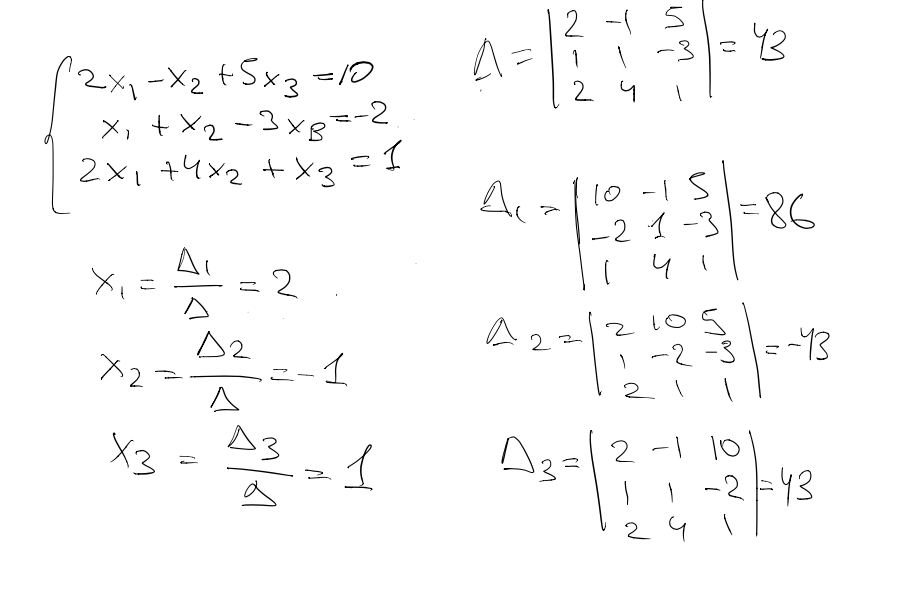 2x₁ - x₂ + 5x₃ = 10
x₁ + x₂ - 3x₃ = -2
2x₁ + 4x₂ + x₃ = 1
x₁ = Δ₁/Δ = 2
x₂ = Δ2/Δ = -1
x₃ = Δ3/Δ = 1
Δ = | 2 -1 5 | = 43
1 1 -3
2 4 1
Δ₁ = | 10 -1 5 | = 86
-2 1 -3
1 4 1
Δ2 = | 2 10 5 | = -43
1 -2 -3
2 1 1
Δ3 = | 2 -1 10 | = 43
1 1 -2
2 4 1